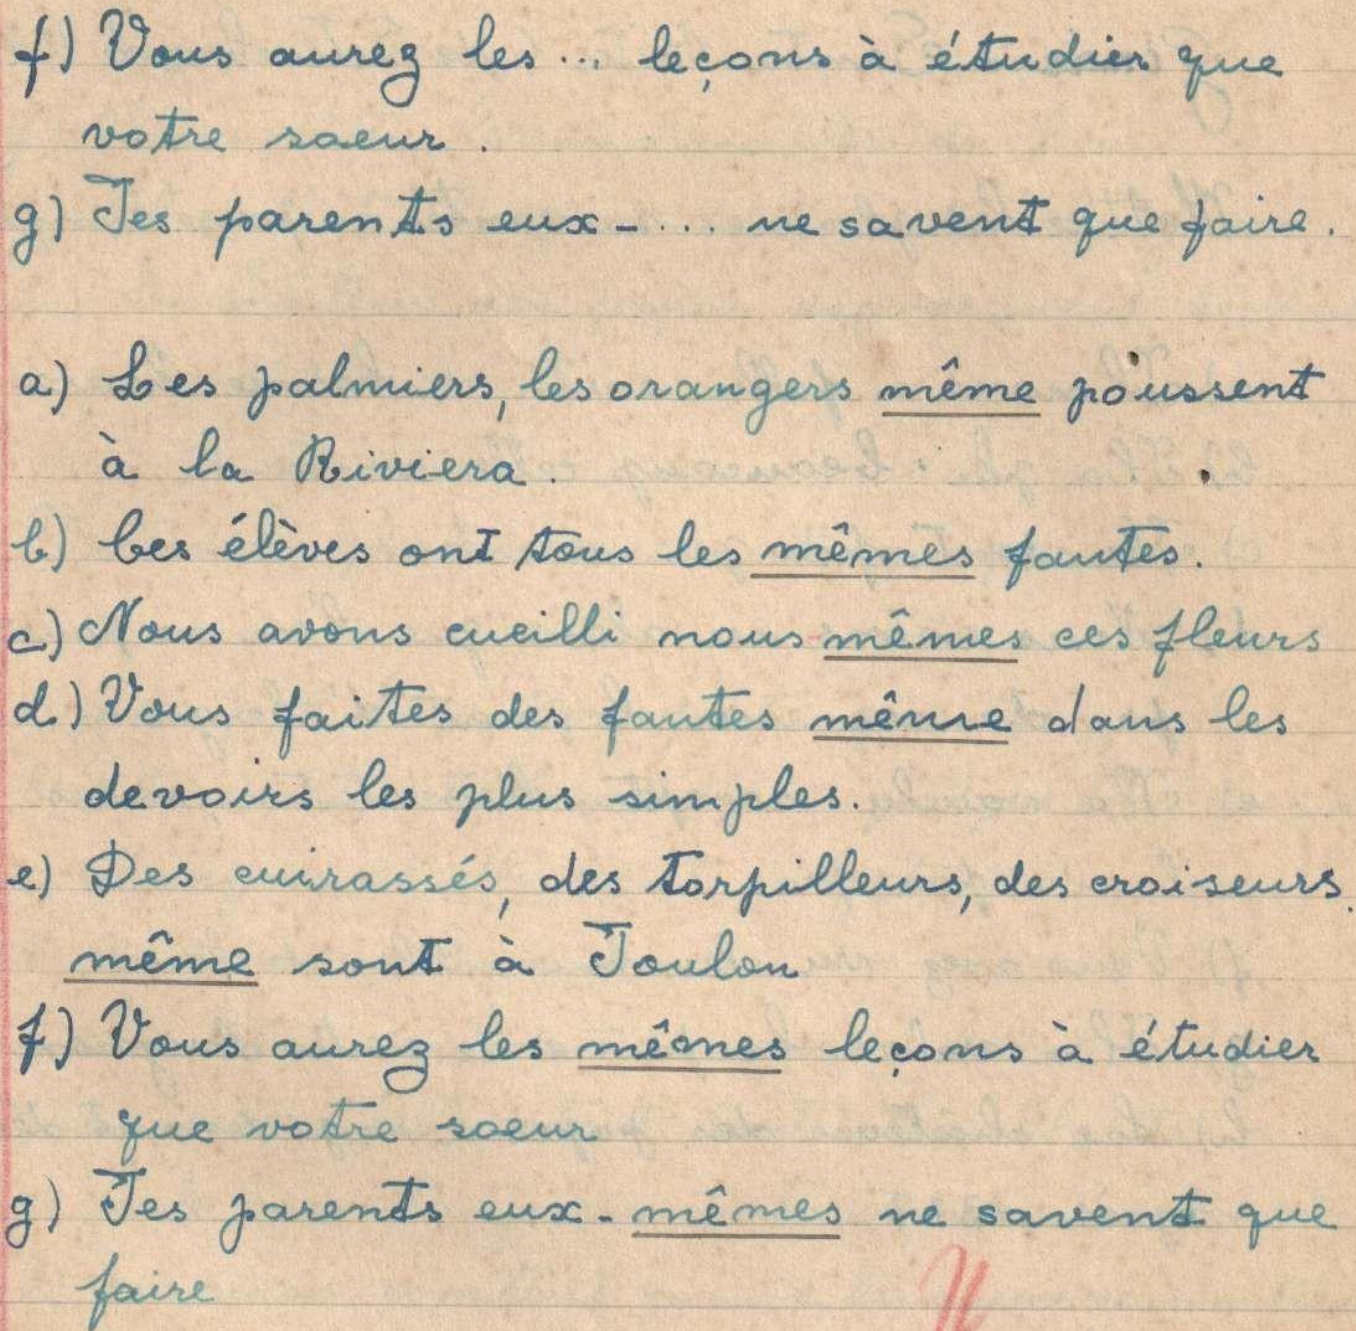 f) Vous aurez les ... leçons à étudier que
votre soeur.
g) Tes parents eux-... ne savent que faire.
a) Les palmiers, les orangers même poussent
à la Riviera.
b) Ces élèves ont tous les mêmes fautes.
c) Nous avons cueilli nous-mêmes ces fleurs
d) Vous faites des fautes même dans les
devoirs les plus simples.
e) Des cuirassés, des torpilleurs, des croiseurs
même sont à Toulon
f) Vous aurez les mêmes leçons à étudier
que votre soeur
g) Tes parents eux-mêmes ne savent que
faire